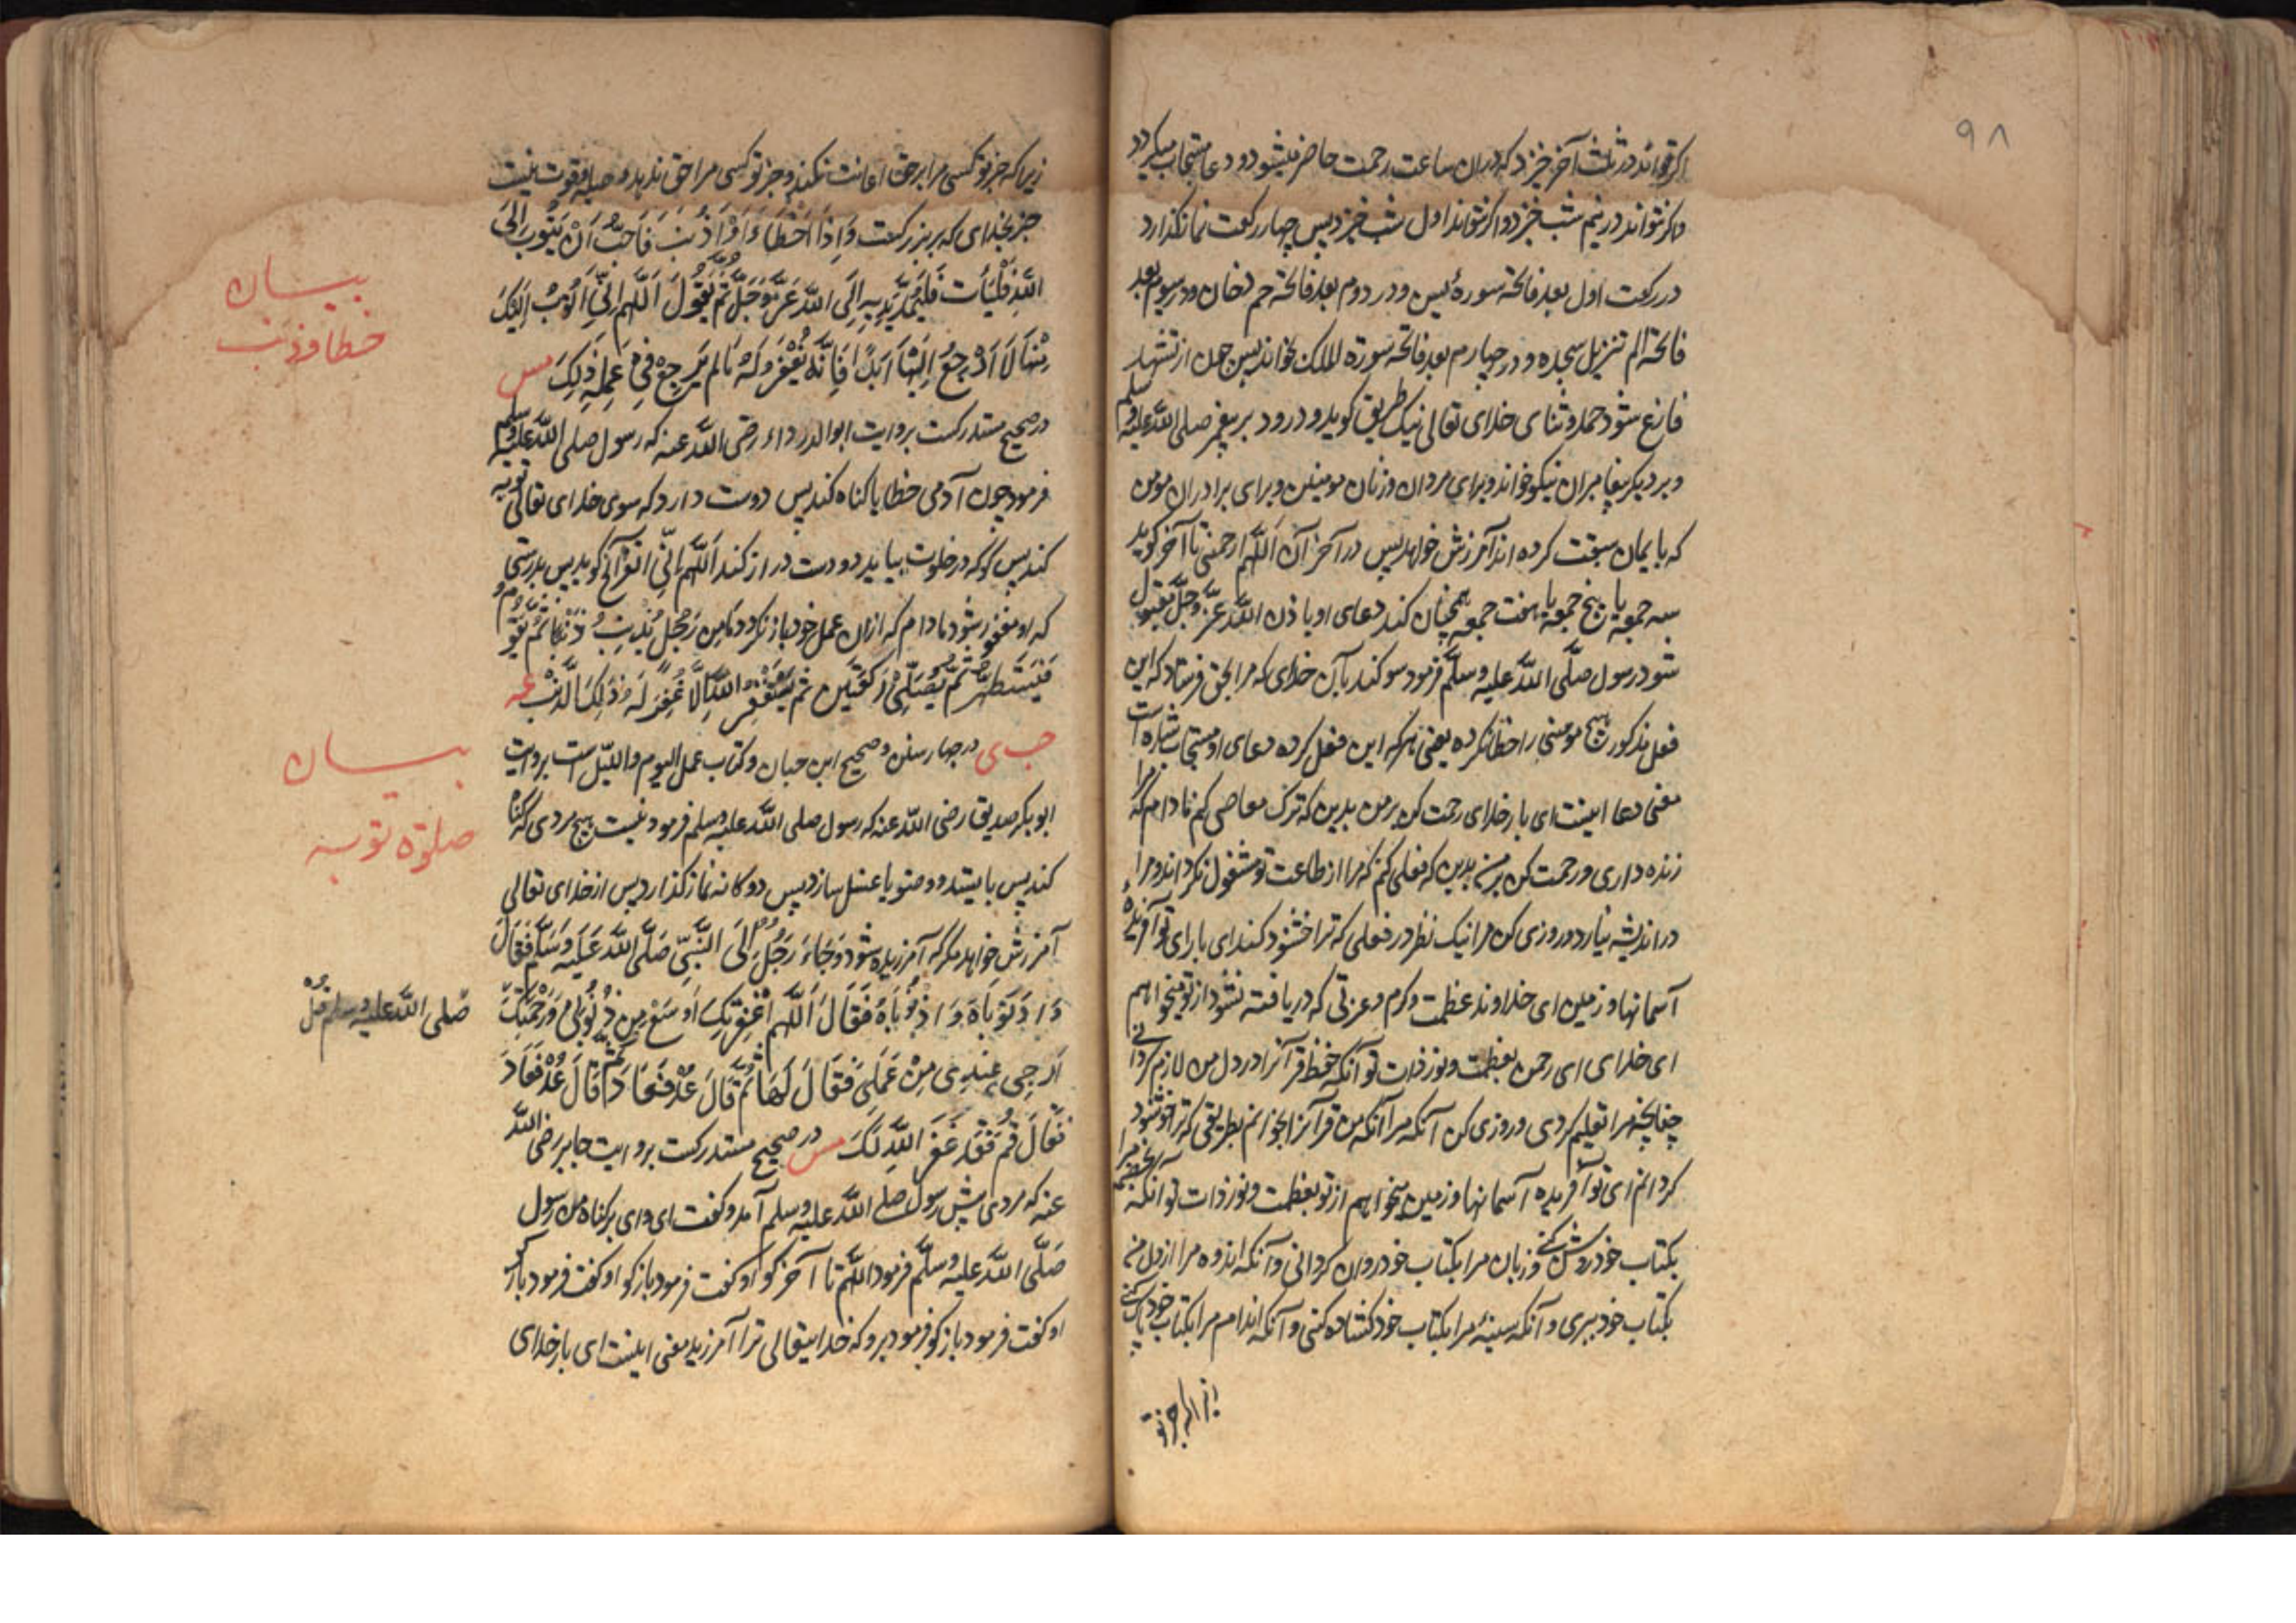 ۹۸
اکر تواند در ثلث آخر خیزد که دران ساعت رحمت حاضر میشود و دعا مستجاب میکردد
واکر نتواند در نیم شب خیزد و اکر نتواند اول شب خیزد پس چهار رکعت نماز کذارد
در رکعت اول بعد فاتحه سورهٔ یس و در دوم بعد فاتحه حم دخان و در سیوم بعد
فاتحه الم تنزیل سجده و در چهارم بعد فاتحه سورة الملک بخواند پس چون از تشهد
فارغ شود حمد و ثنای خدای تعالی نیک طریق کوید و درود بر پیغمبر صلی الله علیه وسلم
و بر دیکر پیغامبران نیکو خواند و برای مردان و زنان مومنین و برای برادران مومن
که بایمان سبقت کرده اند آمرزش خواهد پس در آخر آن اللهم ارحمنی تا آخر کوید
سه جمعه یا پنج جمعه یا هفت جمعه همچنان کند دعای او باذن الله عزّ وجلّ مقبول
شود رسول صلّی الله علیه وسلّم فرمود سوکند بآن خدای که مرا بحق فرستاد که این
فعل مذکور هیچ مومنی را خطا نکرده یعنی هر که این فعل کرده دعای او مستجاب شده است
معنی دعا اینست ای بار خدای رحمت کن بر من بدین که ترک معاصی کنم تا دام که مرا
زنده داری و رحمت کن بر من بدین که فعلی کنم که مرا از طاعت تو مشغول نکرداند و مرا
در اندیشه نیارد و روزی کن مرا نیک نظر در فعلی که ترا خشنود کند ای بارای تو آفریدهٔ
آسمانها و زمین ای خداوند عظمت و کرم و عزتی که دریافته نشود از تو میخواهم
ای خدای ای رحمن بعظمت و نور ذات تو آنکه حفظ قرآنرا در دل من لازم کردانی
چنانچه مرا تعلیم کردی و روزی کن آنکه مرا آنکه من قرآنرا بخوانم بطریقی که ترا خوشنود
کردانم ای تو آفریده آسمانها و زمین میخواهم از تو بعظمت و نور ذات تو آنکه
بکتاب خود روشن کنی و زبان مرا بکتاب خود روان کردانی و آنکه اندوه مرا از دل من
بکتاب خود ببری و آنکه سینهٔ مرا بکتاب خود کشاده کنی و آنکه اندام مرا بکتاب خود پاک کنی
زیرا که جز تو
زیرا که جز تو کسی مرا بر حق اعانت نکند و جز تو کسی مرا حق ندهد و حیله و قوت نیست
جز بخدای که برتر بزرکست وَاِذَا اَخْطَاءَ اَوْ اَذْنَبَ فَاَحَبَّ اَنْ یَتُوبَ اِلَی
اللّٰهِ فَلْیَأتِ فَلْیَمُدَّ یَدَیهِ اِلَی اللّٰهِ عَزَّ وَجَلَّ ثُمَّ یَقُولُ اَللّٰهُمَّ اِنِّی اَتُوبُ اِلَیْکَ
مِنْهَا لَا اَرْجِعُ اِلَیْهَا اَبَدًا فَاِنَّهٗ یُغْفَرُ لَهٗ مَا لَمْ یَرْجِعْ فِی عَمَلِهٖ ذٰلِکَ مس
در صحیح مستدرکست بروایت ابوالدرداء رضی الله عنه که رسول صلی الله علیه وسلم
فرمود چون آدمی خطا یا کناه کند پس دوست دارد که سوی خدای تعالی توبه
کند پس کو که در خلوت بیاید و دو دست دراز کند اَللّٰهُمَّ اِنِّی تا آخر کوید پس بدرستی
که او مغفور شود مادام که ازان عمل خود باز نکردد مَا مِن رَجُلٍ یُذْنِبُ ذَنْبًا ثُمَّ یَقُومُ
فَیَتَطَهَّرُ ثُمَّ یُصَلِّیْ رَکْعَتَیْنِ ثُمَّ یَسْتَغْفِرُ اللّٰهَ اِلَّا غُفِرَ لَهٗ ذٰلِکَ الذَّنْبُ عه
حب ی در چهار سنن و صحیح ابن حبان و کتاب عمل الیوم واللیل است بروایت
ابوبکر صدیق رضی الله عنه که رسول صلی الله علیه وسلم فرمود نیست هیچ مردی که کناه
کند پس بایستد و وضو یا غسل سازد پس دوکانه نماز کذارد پس از خدای تعالی
آمرزش خواهد مکر که آمرزیده شود وَجَاءَ رَجُلٌ اِلَی النَّبِیِّ صَلَّی اللّٰهُ عَلَیْهِ وَسَلَّمَ فَقَالَ
وَا ذُنُوبَاهُ وَا ذُنُوبَاهُ فَقَالَ اَللّٰهُمَّ مَغْفِرَتُکَ اَوْسَعُ مِن ذُنُوبِیْ وَرَحْمَتُکَ
اَرْجٰی عِنْدِی مِنْ عَمَلِی فَقَالَ لَهَا ثُمَّ قَالَ عُدْ فَعَادَ ثُمَّ قَالَ عُدْ فَعَادَ
فَقَالَ قُمْ فَقَدْ غَفَرَ اللّٰهُ لَکَ مس در صحیح مستدرکست بروایت جابر رضی الله
عنه که مردی پیش رسول صلی الله علیه وسلم آمد و کفت ای وای بر کناه من رسول
صَلَّی اللّٰه علیه وسلّم فرمود اللّٰهم تا آخر کو او کفت فرمود باز کو او کفت فرمود باز کو
او کفت فرمود باز کو فرمود برو که خدایتعالی ترا آمرزید معنی اینست ای بار خدای
بیان
خطا و ذنب
بیان
صلوة توبه
صلی الله علیه وسلم قل